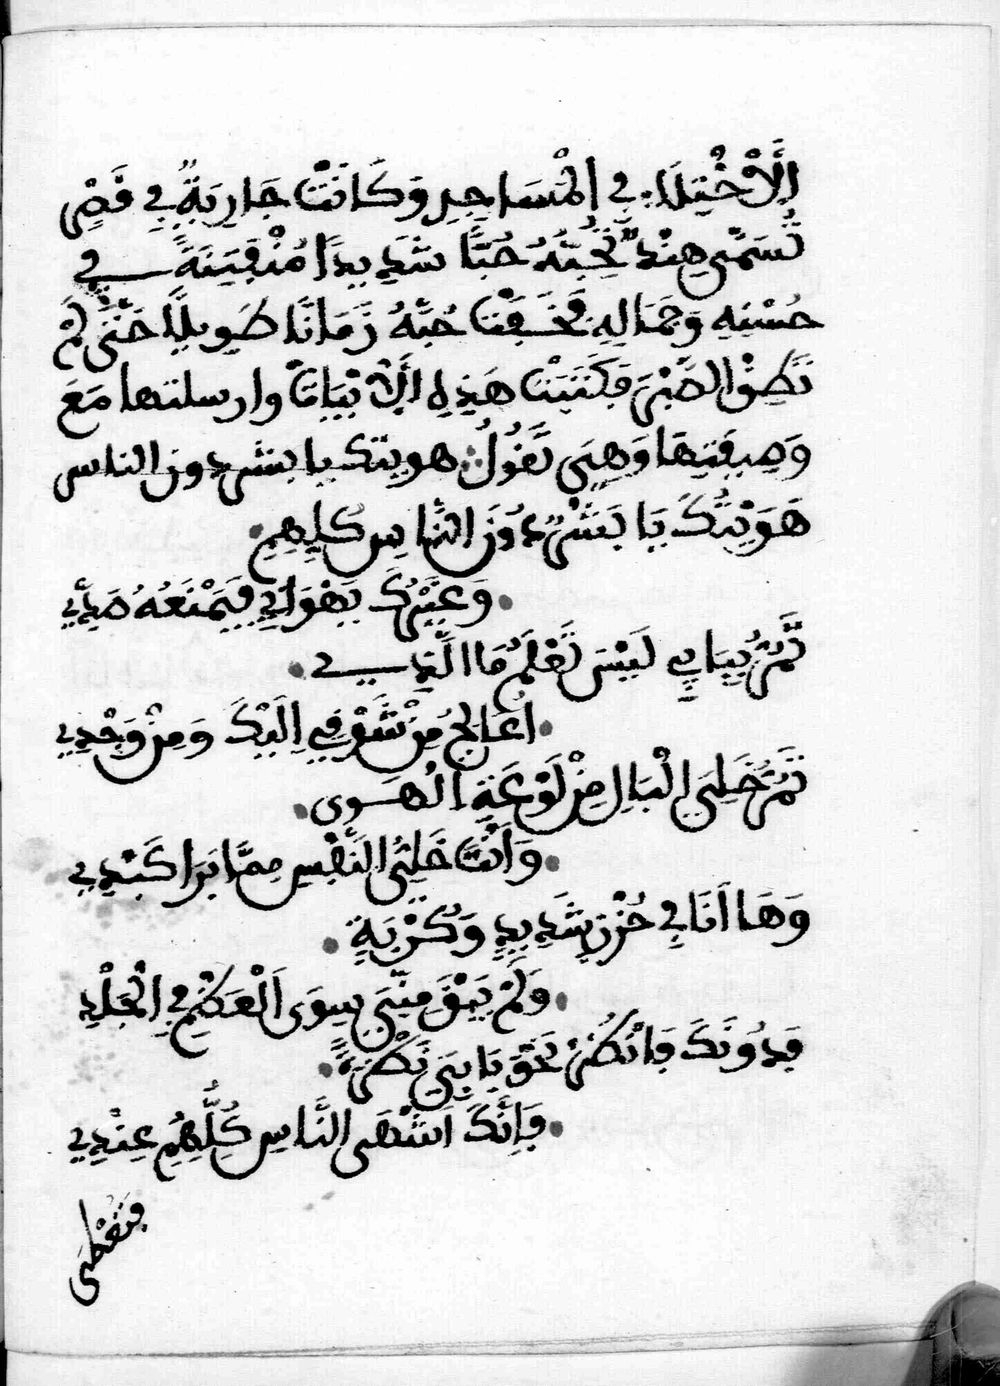 اِلَّاخْتِلَاءُ فِي الْمَسَاجِدِ وَكَانَتْ جَارِيَةٌ فِي قَصْرٍ
تُسَمَّى هِنْدٌ تُحِبُّهُ حُبًّا شَدِيدًا مُتْقَيِنَةً فِي
حُسْنِهِ وَجَمَالِهِ فَخَفَتْ حُبَّهُ زَمَانًا طَوِيلًا حَتَّى لَمْ
تَطِقْ الصَّبْرَ فَكَتَبَتْ هَذِهِ الَابْيَاتَ وارسلتها مَعَ
وَصِيفَتِهَا وَهِيَ تَقُولُ هويتك يا بشر دون الناس
هَوَيْتُكَ يَا بَشْرٌ دُونَ النَّاسِ كُلِهِمِ
وَغَيْرُكَ يَهْوَانِي فَيَمْنَعُهُ صَدِّي
تَمُرُّ بِبَابِي لَيْسَ تَعْلَمُ مَا الَّذِي
اُعَالِجُ مِنْ شَوْقِي اِلَيْكَ وَمِنْ وَجْدِي
تَمُرُّ خَلِيَ الْبَالِ مِنْ لَوْعَةِ الْهَوى
وَاَنْتَ خَلِيُّ النَّفْسِ مِمَّا بَرَا كَبْدِي
وَهَا اَنَا فِي حُزْنٍ شَدِيدٍ وَكُرْبَةٍ
وَلَمْ يَبْقَ مِنِّي سِوَى الْعَظْمِ فِي الْجِلْدِ
فَدُونَكَ فَانْظُرْ نَحْوَ بَابِيَ نَظْرَةً
فَاِنَّكَ اَشْهَى النَّاسِ كُلُّهِمُ عِنْدِي